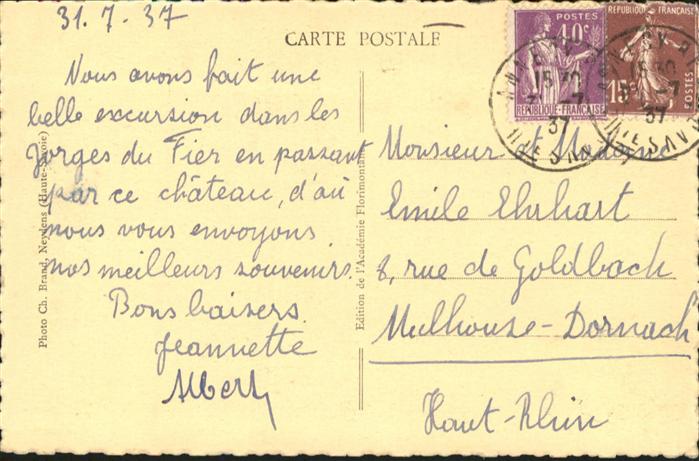 31.7-37
CARTE POSTALE
Nous avons fait une
belle excursion dans les
Gorges du Fier en passant
par ce château, d'où
nous vous envoyons
nos meilleurs souvenirs.
Bons baisers.
Jeannette
Albert
Photo Ch. Brand, Neydens (Haute-Savoie)
Edition de l'Académie Florimontane
POSTES
40c
REPUBLIQUE-FRANÇAISE
REPUBLIQUE FRANÇAISE
15c
POSTES
15 30
37
HTE SAVOIE
15 30
-7
37
HTE SAVOIE
Monsieur et Madame
Emile Ehrhart
8, rue de Goldbach
Mulhouse-Dornach
Haut-Rhin